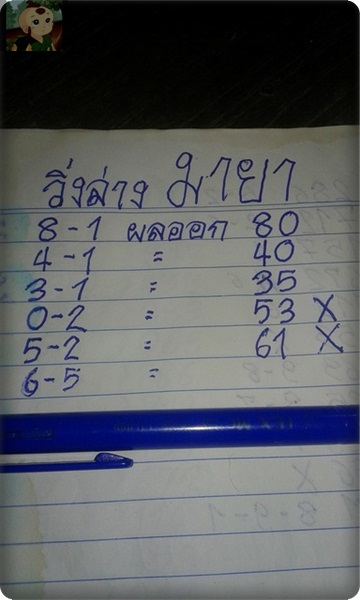 วิ่งล่าง มายา
8-1 ผลออก 80
4-1 = 40
3-1 = 35
0-2 = 53 X
5-2 = 61 X
6-5 =